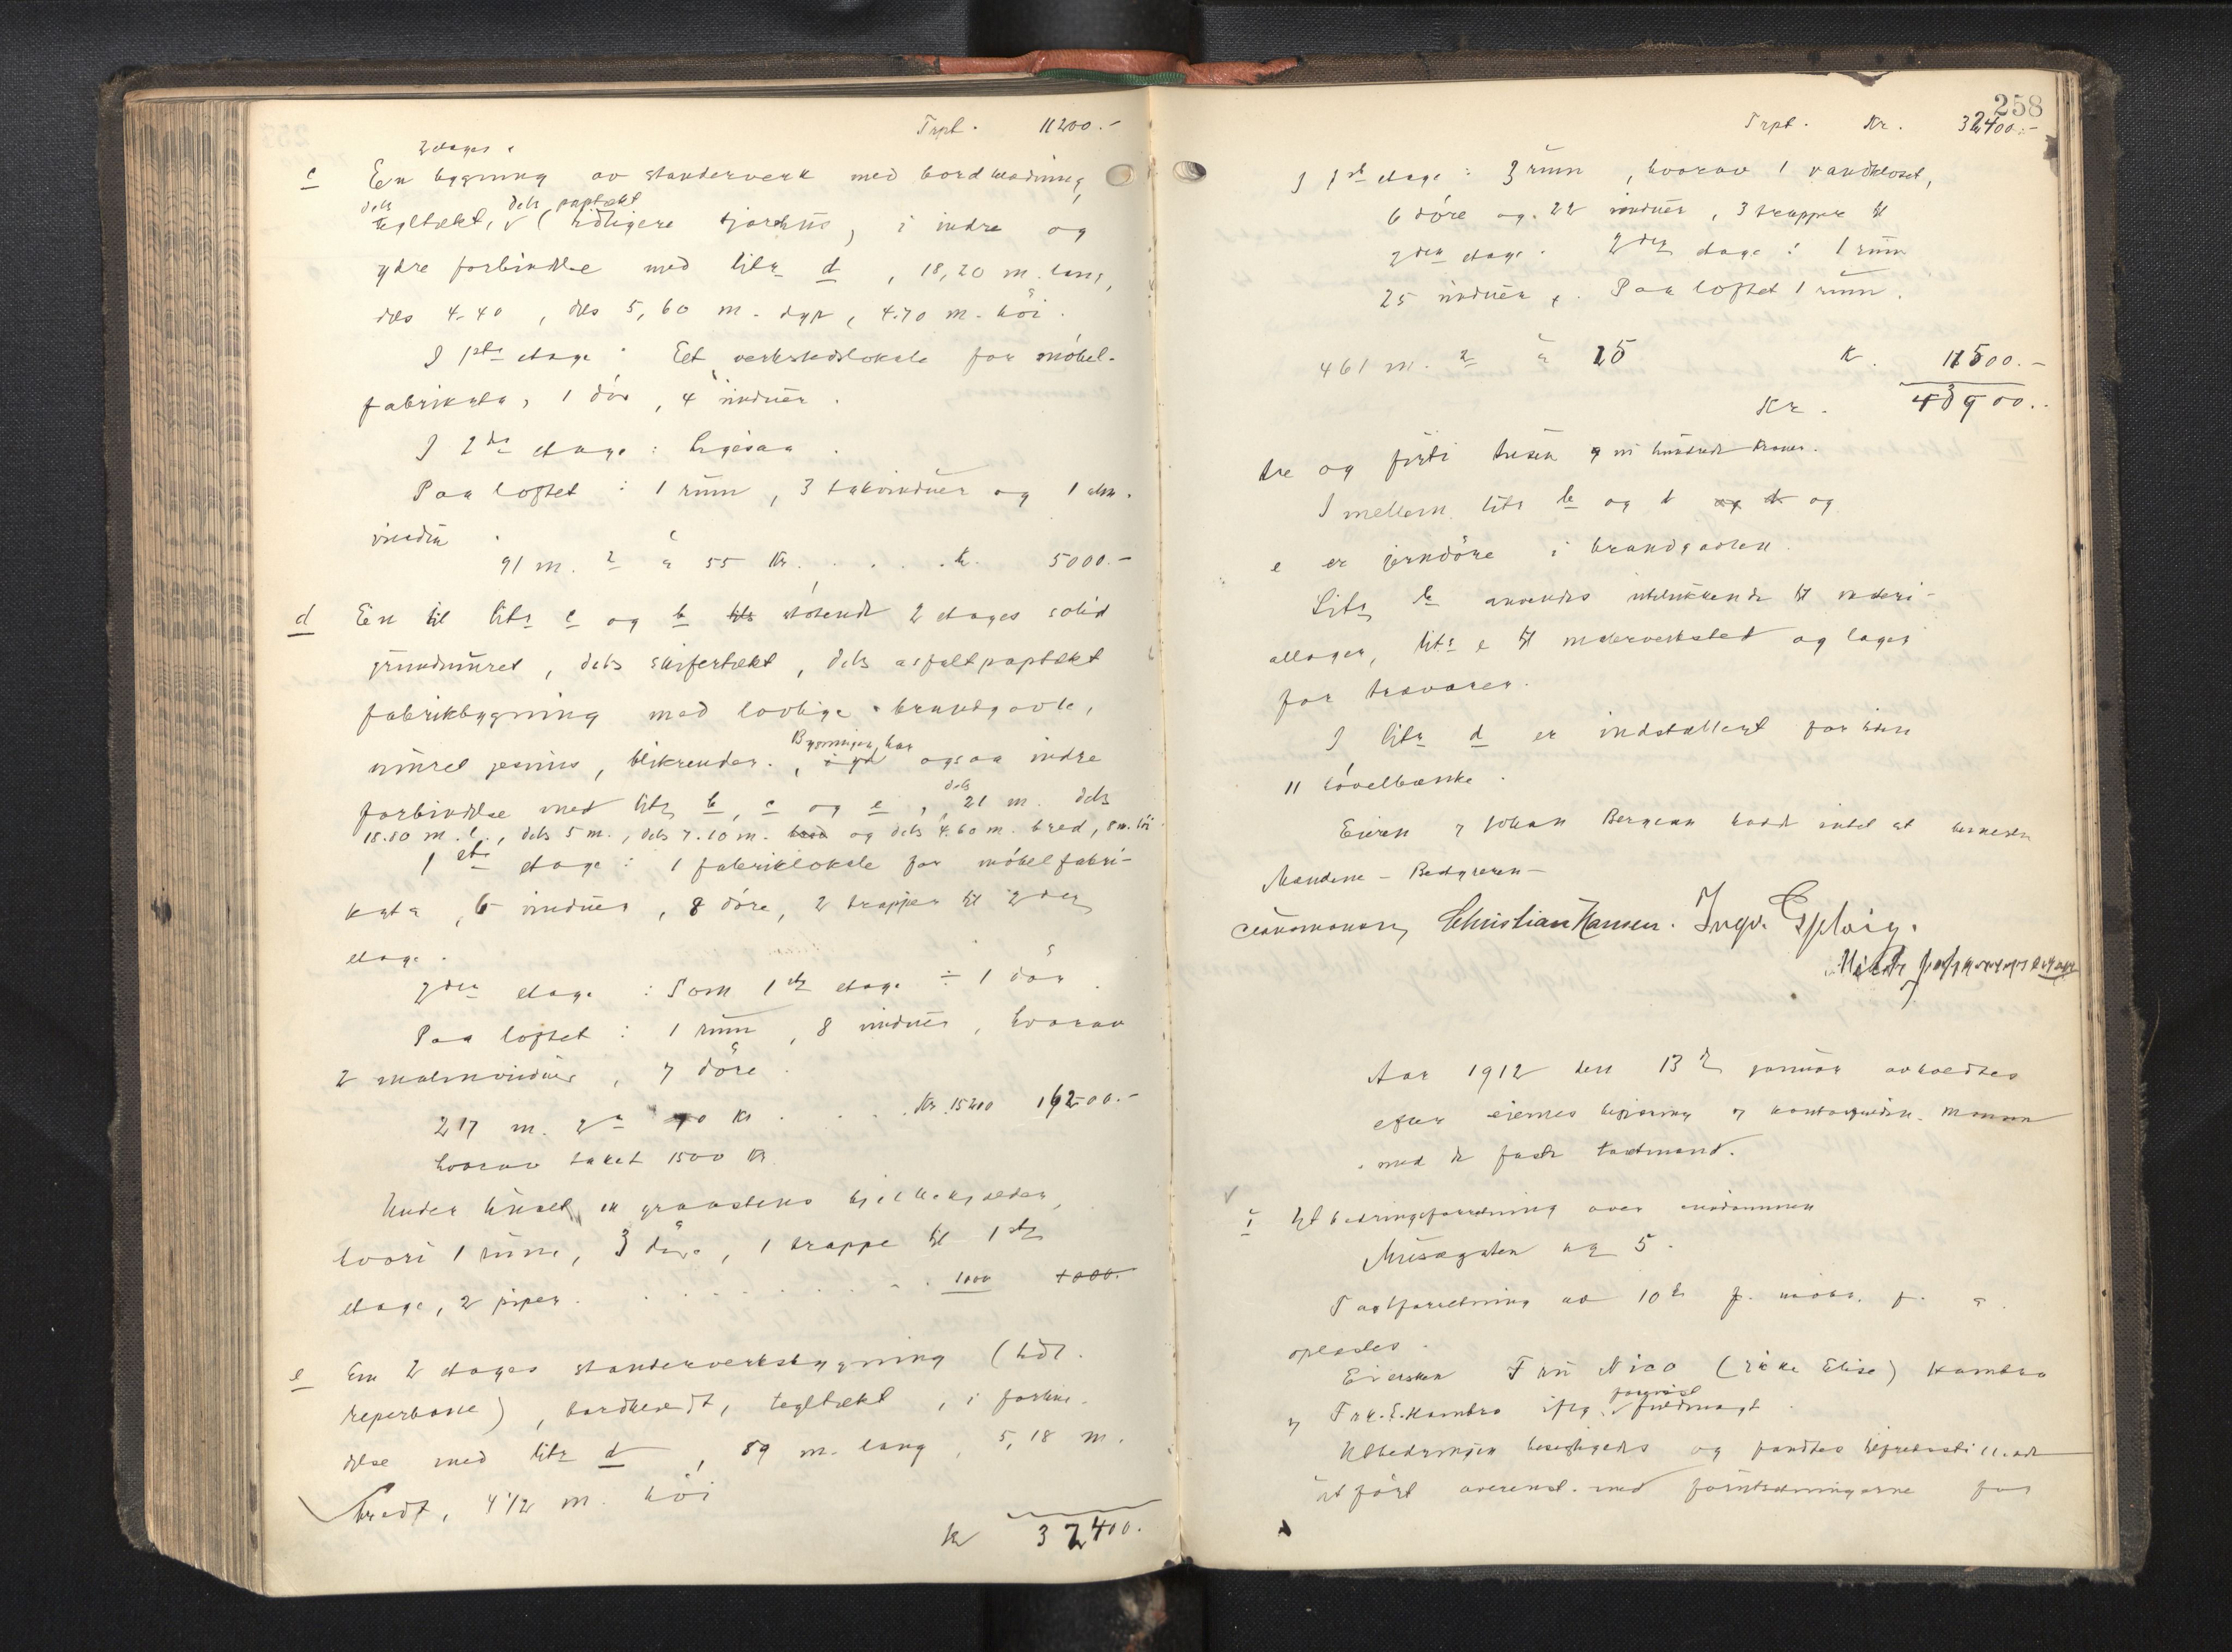 Trpt. 11200.-
2 etages
c En bygning av standerverk med bordklædning,
dels dels paptækt
tegltækt, v (tidligere tjærehus), i indre og
ydre forbindelse med litr d, 18,20 m. lang,
dels 4.40, dels 5,60 m. dyp, 4.70 m. höi.
I 1ste etage: Eet verkstedslokale for möbel-
fabrikata, 1 dör, 4 vinduer.
I 2den etage: Ligesaa.
Paa loftet: 1 rum, 3 takvinduer og 1 alm.
vindu.
91 m. 2 à 55 Kr. . . . . k. 5000.-
d En til litr c og b stötende 2 etages solid
grundmuret, dels skifertækt, dels asfaltpaptækt
fabrikbygning med lovlige brandgavle,
Bygningen har
muret gesims, blikrender. , også ogsaa indre
dels
forbindelse med litr b, c og e, 21 m. dels
18.80 m. l., dels 5 m., dels 7.10 m. bred og dels 4.60 m. bred, 8 m. höi.
1ste etage: 1 fabriklokale for möbelfabri-
kata, 6 vinduer, 8 döre, 2 trapper til 2den
etage.
2den etage: Som 1ste etage ÷ 1 dör.
Paa loftet: 1 rum, 8 vinduer, hvorav
2 vinduer, 7 döre.
217 m. 2 à 70 Kr . . . Kr. 15200 16200.-
hvorav taket 1500 Kr
Under huset er graastens kjelder,
hvori 1 rum, 3 döre, 1 trappe til 1ste
etage, 2 piper. . . . . . . . 1000 1000.
e En 2 etages standerverksbygning (tidl.
reperbane), bordklædt, tegltækt, i forbin-
delse med litr d, 89 m. lang, 5,18 m.
bredt, 4 1/2 m. höi
k 32400.
258
Trpt. Kr. 32400.-
I 1ste etage: 3 rum, hvorav 1 vandkloset,
6 döre og 22 vinduer, 3 trapper til
2den etage. 2den etage: 1 rum
25 vinduer. Paa loftet 1 rum.
461 m. 2 à 25 K. 11500.-
Kr. 43900..
tre og firti tusen og ni hundrede kroner.
Imellem litr b og d og d og
e er jerndöre i brandgavlen.
Litr b anvendes utelukkende til materi-
allager, litr e til malerverksted og lager
for trævarer.
I litr d er indstalleret for tiden
11 hövelbænke.
Eieren Johan Bergean hadde intet at bemerke
Mændene - Bestyreren -
Christian Hansen. Ingv. Espvig.
Aar 1912 den 13de januar avholdtes
efter eiernes begjæring
med de faste takstmænd.
v
i Utbedringsforretning over eiendommen
Musegaten nr 5.
Takstforretning av 10de f. f. a.
oplæstes.
Eiersken Fru Nico (ikke Elise) Hambro
v Frk. E. Hambro iflg. fuldmagt
Utbedringen besigtigedes og fandtes tilfredsstillende
utfört overenst. med forutsætningerne for